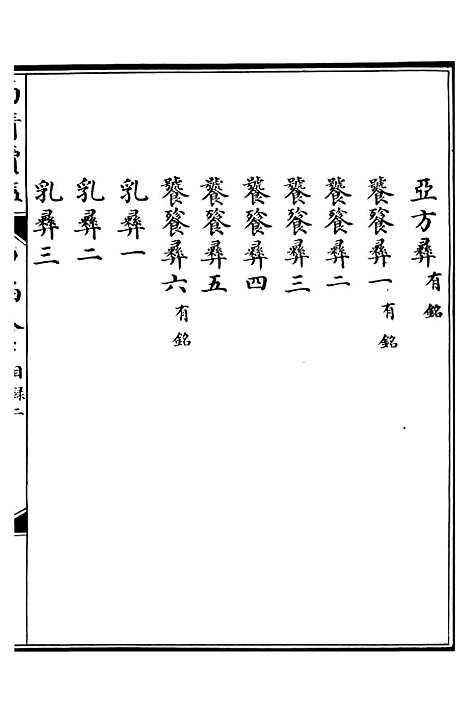 亞方彝有銘
饕餮彝一有銘
饕餮彝二
饕餮彝三
饕餮彝四
饕餮彝五
饕餮彝六有銘
乳彝一
乳彝二
乳彝三
目錄二